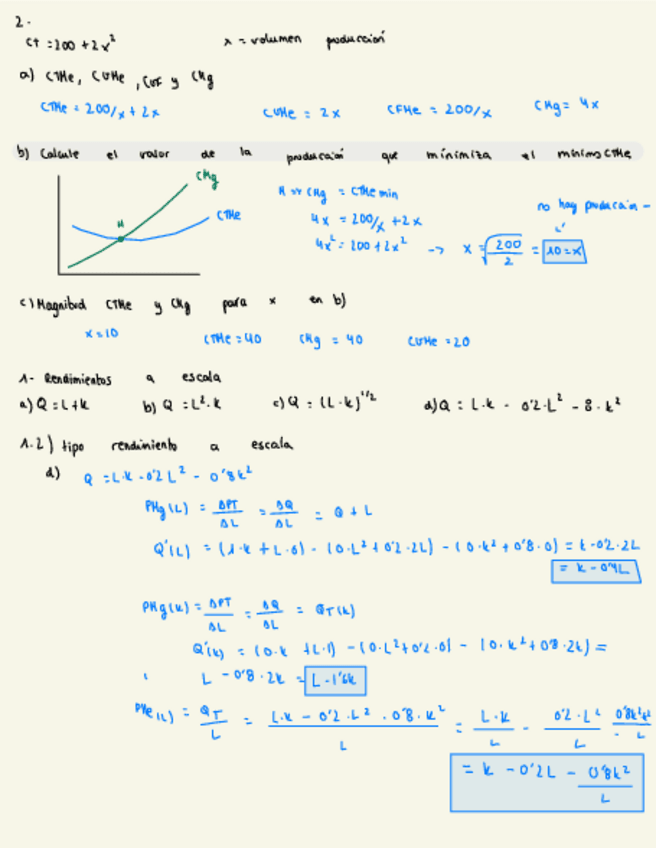 2.
CT = 200 + 2x² x = volumen producción
a) CTMe, CVMe, CVF y CMg
CTMe = 200/x + 2x CVMe = 2x CFMe = 200/x CMg = 4x
b) Calcule el valor de la producción que minimiza el mínimo CTMe
CMg
CTMe
M
M => CMg = CTMe min
4x = 200/x + 2x
4x² = 200 + 2x² -> x = √200/2 = 10 = x
no hay producción -
c) Magnitud CTMe y CMg para x en b)
x = 10 CTMe = 40 CMg = 40 CVMe = 20
1- Rendimientos a escala
a) Q = L + k b) Q = L² · k c) Q = (L · k)^1/2 d) Q = L · k - 0'2 · L² - 8 · k²
1.2) tipo rendimiento a escala
d) Q = L · k - 0'2 L² - 0'8k²
PMg(L) = ΔPT/ΔL = ΔQ/ΔL = Q + L
Q'(L) = (1 · k + L · 0) - (0 · L² + 0'2 · 2L) - (0 · k² + 0'8 · 0) = k - 0'2 · 2L
= k - 0'4L
PMg(k) = ΔPT/ΔL = ΔQ/ΔL = QT(k)
Q'(k) = (0 · k + L · 1) - (0 · L² + 0'2 · 0) - (0 · k² + 0'8 · 2k) =
L - 0'8 · 2k = L - 1'6k
PMe(L) = QT/L = L · k - 0'2 · L² · 0'8 · k²/L = L · k/L - 0'2 · L²/L - 0'8k²/L
= k - 0'2L - 0'8k²/L